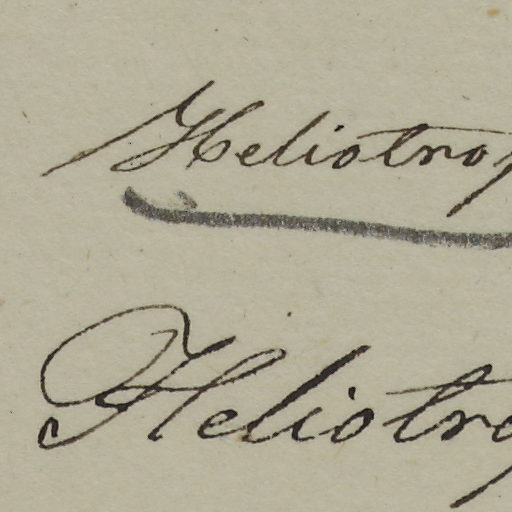 Heliotrop
Heliotrop